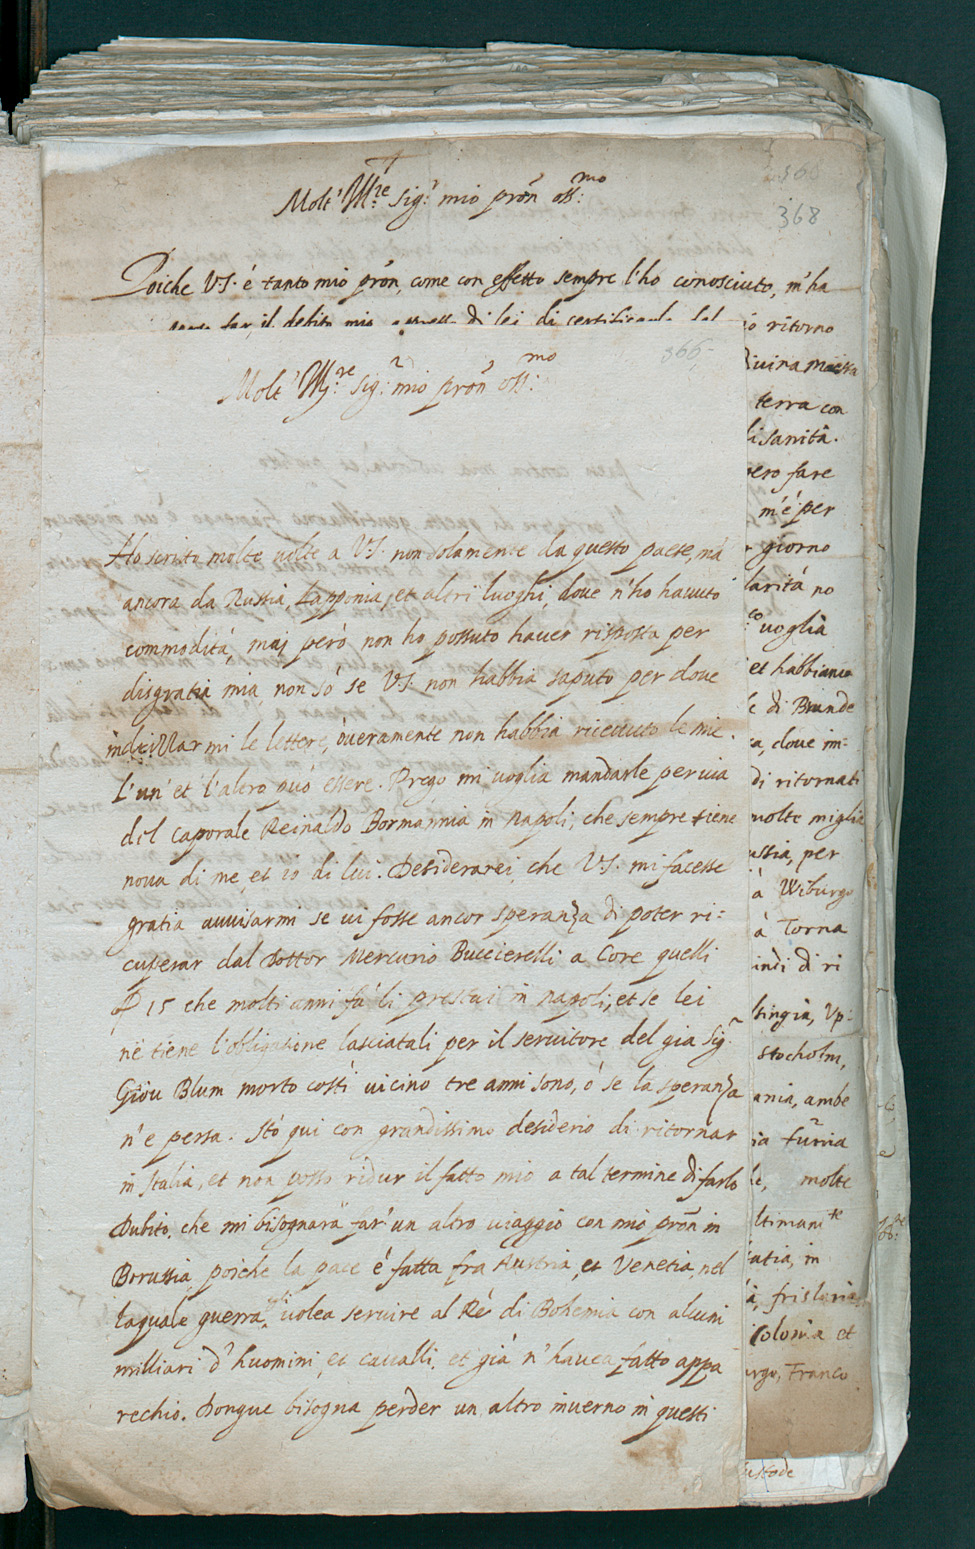 368
Molt' Ill.re Sig.r mio pron oss.mo
Poiche VS. é tanto mio pron, come con effetto sempre l'ho conosciuto, m'ha
far il debito mio di lei di certificarla del
io ritorno
diuina maesta
terra con
di sanità.
pero fare
m'é per
giorno
larità no
voglia
et habbiamo
di Brande
ca, doue im-
di ritornati
molte miglia
ussia, per
à Wiburgo
à Torna
indi di ri
stingia, Vp:
stocholm,
ania, ambe
ia furia
molte
ltimam.te
atia, in
frislaria
Colonia et
urgo, Franco
custode
366
Molt' Ill.re Sig.r mio pron oss.mo
Ho scritto molte uolte a VS. non solamente da questo paese, ma
ancora da Russia, Lapponia, et altri luoghi, doue n'ho hauuto
commodità, maj però non ho possuto hauer risposta per
disgratia mia, non sò se VS. non habbia saputo per doue
indrizzarmi le lettere, ò ueramente non habbia riceuuto le mie.
L'un' et l'altro può essere. Prego mi uoglia mandarle per uia
del caporale Reinaldo Bormannia in Napoli, che sempre tiene
noua di me, et io di lui. Desiderarei, che VS. mi facesse
gratia auuisarmi se ui fosse ancor speranza di poter ri:
cuperar dal Dottor Mercurio Buccierelli a Core quelli
15 che molti anni fà li prestai in Napoli, et se lei
nè tiene l'obligatione lasciatali per il seruitore del gia Sig.r
Giou Blum morto costì uicino tre anni sono, ò se la speranza
n'e persa. Stò qui con grandissimo desiderio di ritornar
in Italia, et non posso ridur il fatto mio a tal termine di farlo
Dubito, che mi bisognarà far' un altro uiaggio con mio pron in
Borussia, poiche la pace é fatta fra Austria, et Venetia, nel
laquale guerra uolea seruire al Rè di Bohemia con alcuni
milliari d'huomini, et caualli, et già n'hauea fatto appa
rechio. Donque bisogna perder un altro inuerno in questi